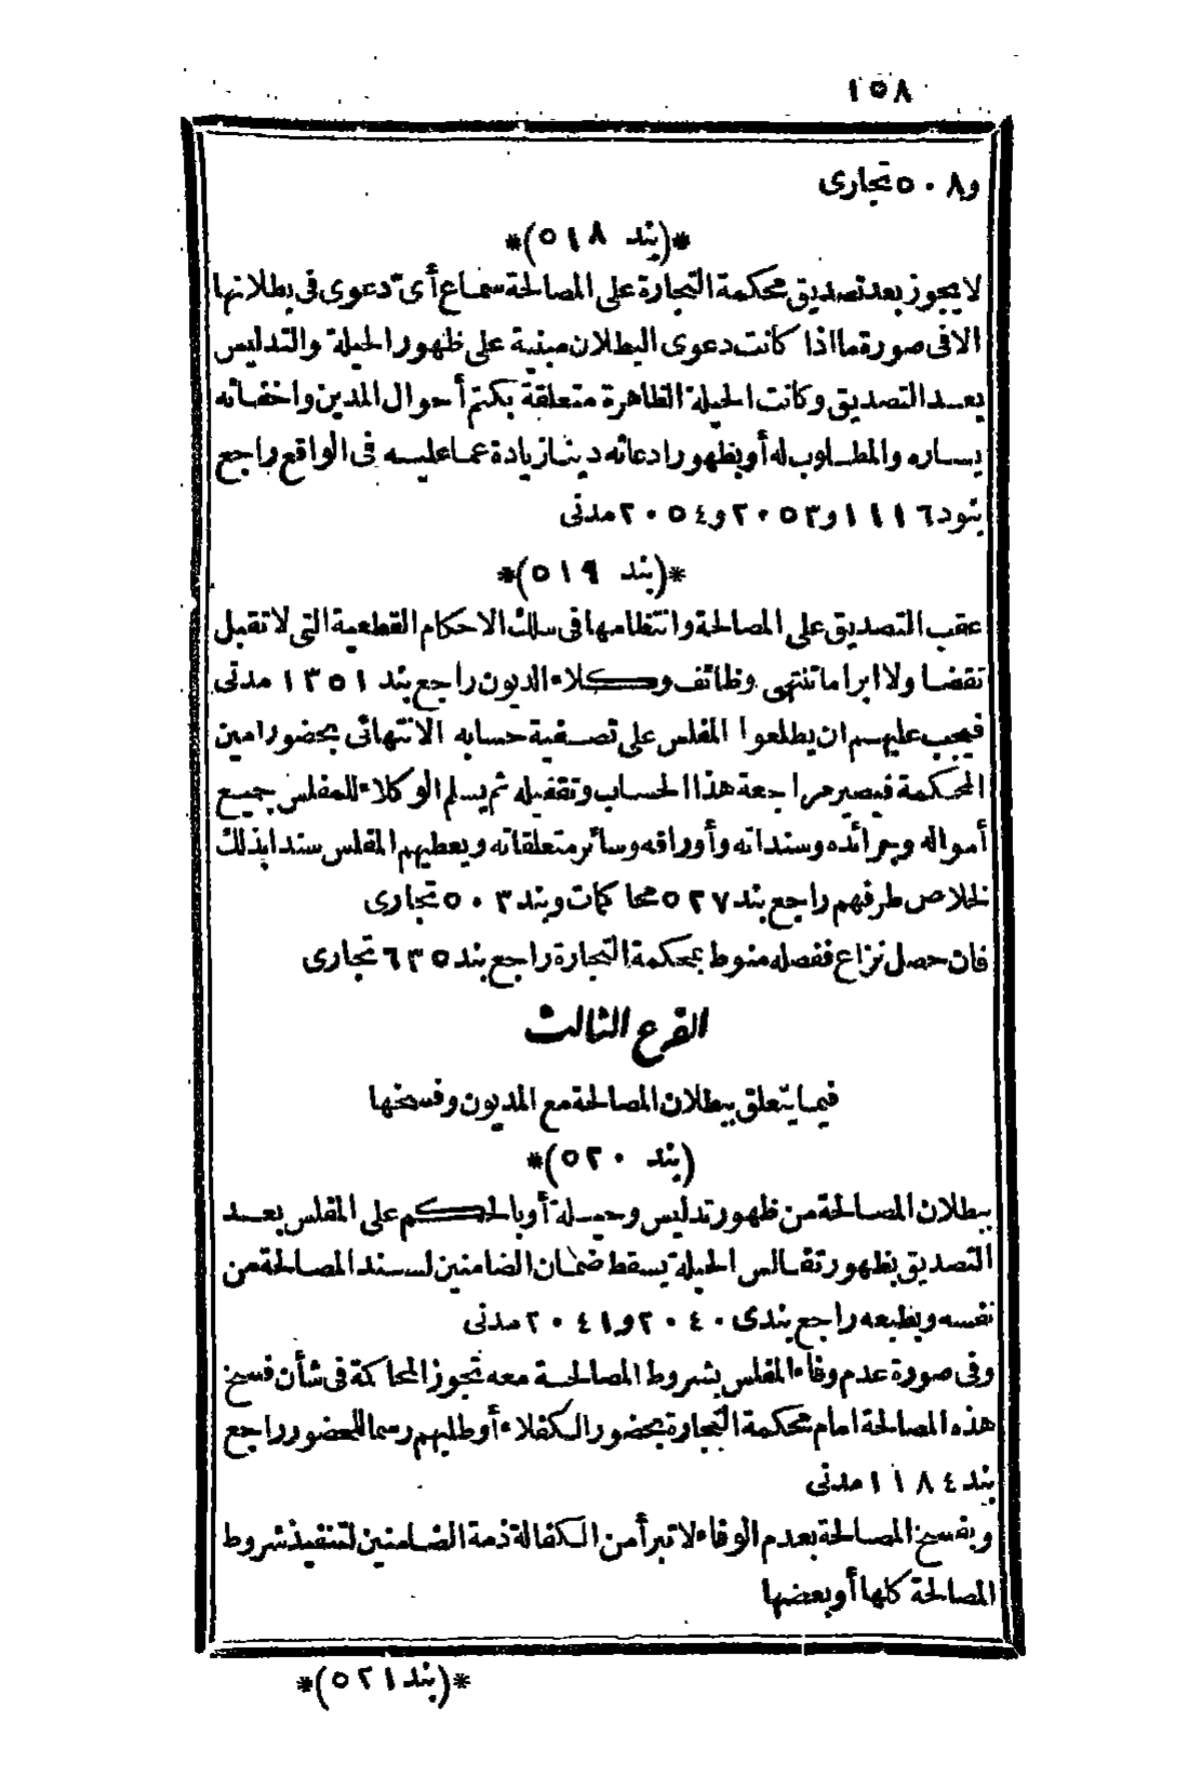 ١٥٨
و٥٠٨ تجارى
*(بند ٥١٨)*
لا يجوز بعد تصديق محكمة التجارة على المصالحة سماع أى دعوى فى بطلانها
الا فى صورة ما اذا كانت دعوى البطلان مبنية على ظهور الحيلة والتدليس
بعد التصديق وكانت الحيلة الظاهرة متعلقة بكتم أحوال المدين واخفائه
يساره والمطلوب له أو بظهور ادعائه دينا زيادة عما عليه فى الواقع راجع
بنود ١١١٦ و٢٠٥٣ و٢٠٥٤ مدنى
*(بند ٥١٩)*
عقب التصديق على المصالحة وانتظامها فى سلك الاحكام القطعية التى لا تقبل
نقضا ولا ابراما تنتهى وظائف وكلاء الديون راجع بند ١٣٥١ مدنى
فيجب عليهم ان يطلعوا المفلس على تصفية حسابه الانتهائى بحضور امين
المحكمة فيصير مراجعة هذا الحساب وتقفيله ثم يسلم الوكلاء للمفلس جميع
أمواله وجرائده وسنداته وأوراقه وسائر متعلقاته ويعطيهم المفلس سندا بذلك
لخلاص طرفهم راجع بند ٥٢٧ محاكمات وبند ٥٠٣ تجارى
فان حصل نزاع ففصله منوط بمحكمة التجارة راجع بند ٦٣٥ تجارى
الفرع الثالث
فيما يتعلق ببطلان المصالحة مع المديون وفسخها
(بند ٥٢٠)*
ببطلان المصالحة من ظهور تدليس وحيلة أو بالحكم على المفلس بعد
التصديق بظهور تفالس الحيلة يسقط ضمان الضامنين لسند المصالحة من
نفسه وبطبعه راجع بندى ٢٠٤٠ و٢٠٤١ مدنى
وفى صورة عدم وفاء المفلس بشروط المصالحة معه تجوز المحاكمة فى شأن فسخ
هذه المصالحة امام محكمة التجارة بحضور الكفلاء أو طلبهم رسما للحضور راجع
بند ١١٨٤ مدنى
وبفسخ المصالحة بعدم الوفاء لا تبرأ من الكفالة ذمة الضامنين لتنفيذ شروط
المصالحة كلها أو بعضها
*(بند ٥٢١)*